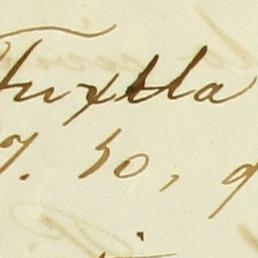 Tuxtla
7. 50, 9